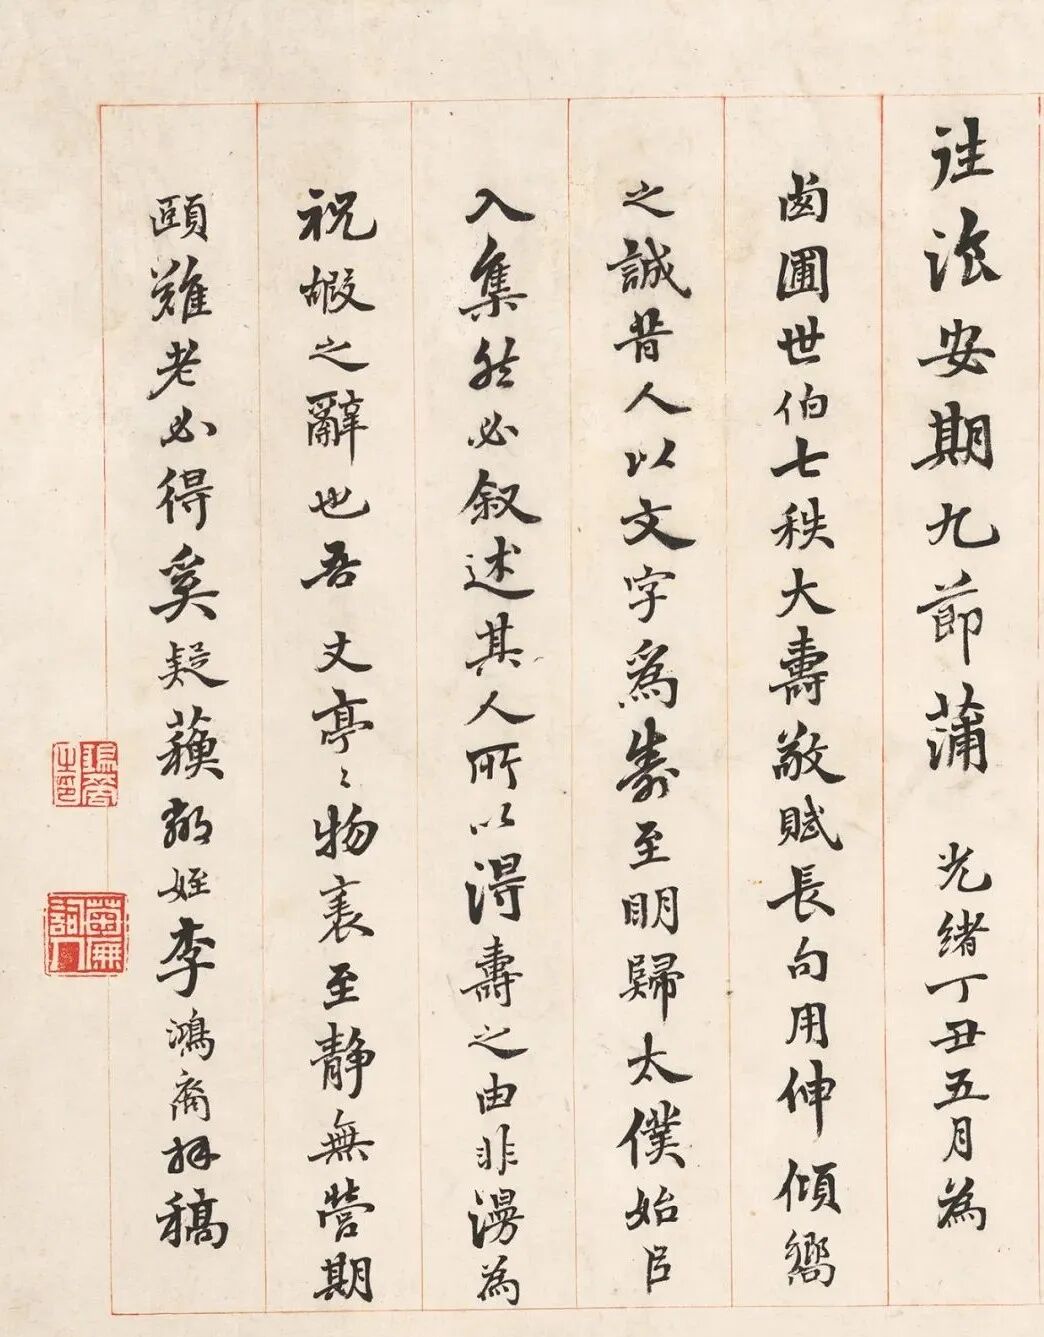 安期九節蒲 光緒丁丑五月為
卥圃世伯七秩大壽敬賦長句用伸傾嚮
之誠昔人以文字為壽至明歸太僕始㠯
入集然必叙述其人所以得壽之由非漫為
祝嘏之辭也吾 丈亭〻物表至静無營期
頤難老必得奚疑蘓鄰姪李鴻裔拜稿
鴻裔之印